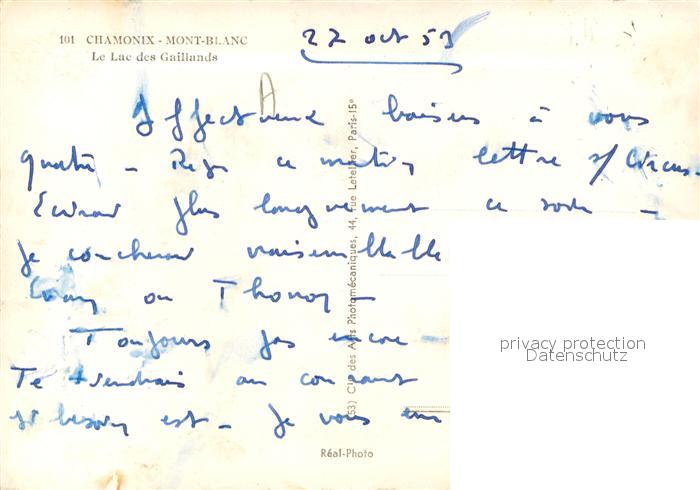 101 CHAMONIX - MONT-BLANC
Le Lac des Gaillands
22 oct 53
A
Affectueux baisers à vous
quatre - Reçu ce matin, lettre s/
Ecrirai plus longuement ce soir -
Je coucherai vraisemblable
Evian ou Thonon -
Toujours pas encore -
Te tiendrais au courant
si besoin est - Je vous
(53) Cie des Arts Photomécaniques, 44, rue Letellier, Paris-15e
Réal-Photo
privacy protection
Datenschutz